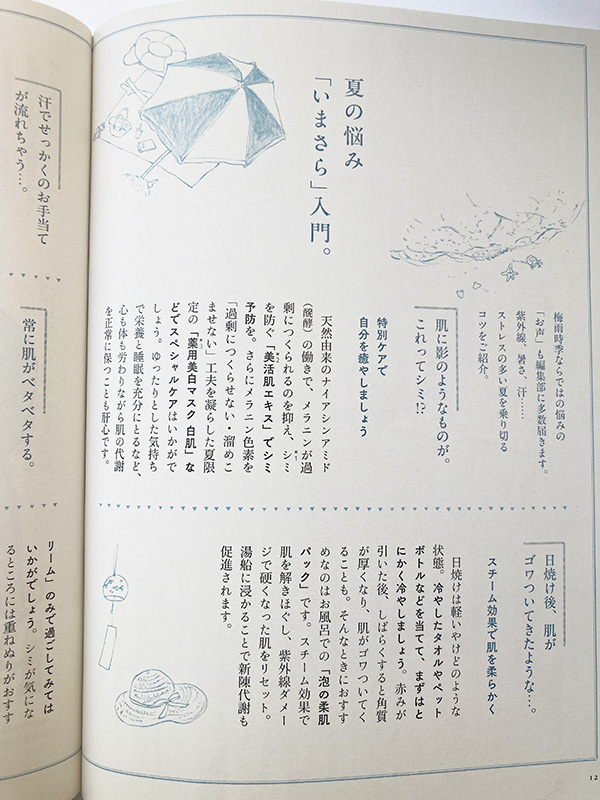 夏の悩み
「いまさら」入門。
梅雨時季ならではの悩みの
「お声」も編集部に多数届きます。
紫外線、暑さ、汗……
ストレスの多い夏を乗り切る
コツをご紹介。
肌に影のようなものが。
これってシミ!?
特別ケアで
自分を癒やしましょう
天然由来のナイアシンアミド
(醗酵)の働きで、メラニンが過
剰につくられるのを抑え、シミ
を防ぐ「美活肌エキス」でシミ
予防を。さらにメラニン色素を
「過剰につくらせない・溜めこ
ませない」工夫を凝らした夏限
定の「薬用美白マスク 白肌」な
どでスペシャルケアはいかがで
しょう。ゆったりとした気持ち
で栄養と睡眠を充分にとるなど、
心も体も労わりながら肌の代謝
を正常に保つことも肝心です。
日焼け後、肌が
ゴワついてきたような…。
スチーム効果で肌を柔らかく
日焼けは軽いやけどのような
状態。冷やしたタオルやペット
ボトルなどを当てて、まずはと
にかく冷やしましょう。赤みが
引いた後、しばらくすると角質
が厚くなり、肌がゴワついてく
ることも。そんなときにおすす
めなのはお風呂での「泡の柔肌
パック」です。スチーム効果で
肌を解きほぐし、紫外線ダメー
ジで硬くなった肌をリセット。
湯船に浸かることで新陳代謝も
促進されます。
12
汗でせっかくのお手当て
が流れちゃう…。
常に肌がベタベタする。
リーム」のみで過ごしてみては
いかがでしょう。シミが気にな
るところには重ねぬりがおすす